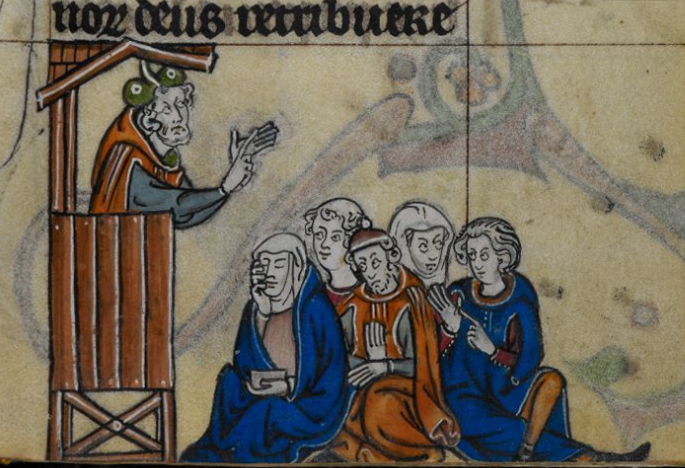 noꝛ deus retribuere